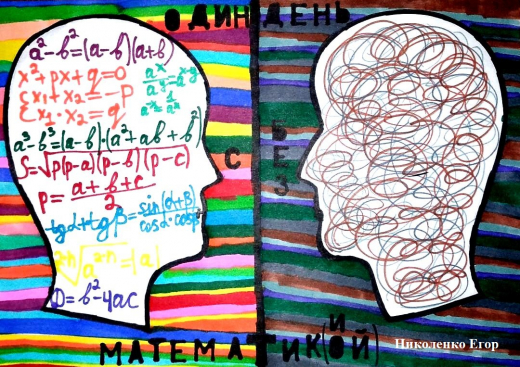 ОДИН ДЕНЬ
a²-b²=(a-b)(a+b)
x²+px+q=0
x₁+x₂=-p
x₁·x₂=q
a³-b³=(a-b)·(a²+ab+b²)
S=√p(p-a)(p-b)(p-c)
P=a+b+c/2
tgα+tgβ=sin(α+β)/cosα·cosβ
²ⁿ√a²ⁿ=|a|
D=b²-4ac
С
БЕЗ
МАТЕМАТИК(ИОЙ)
Николенко Егор